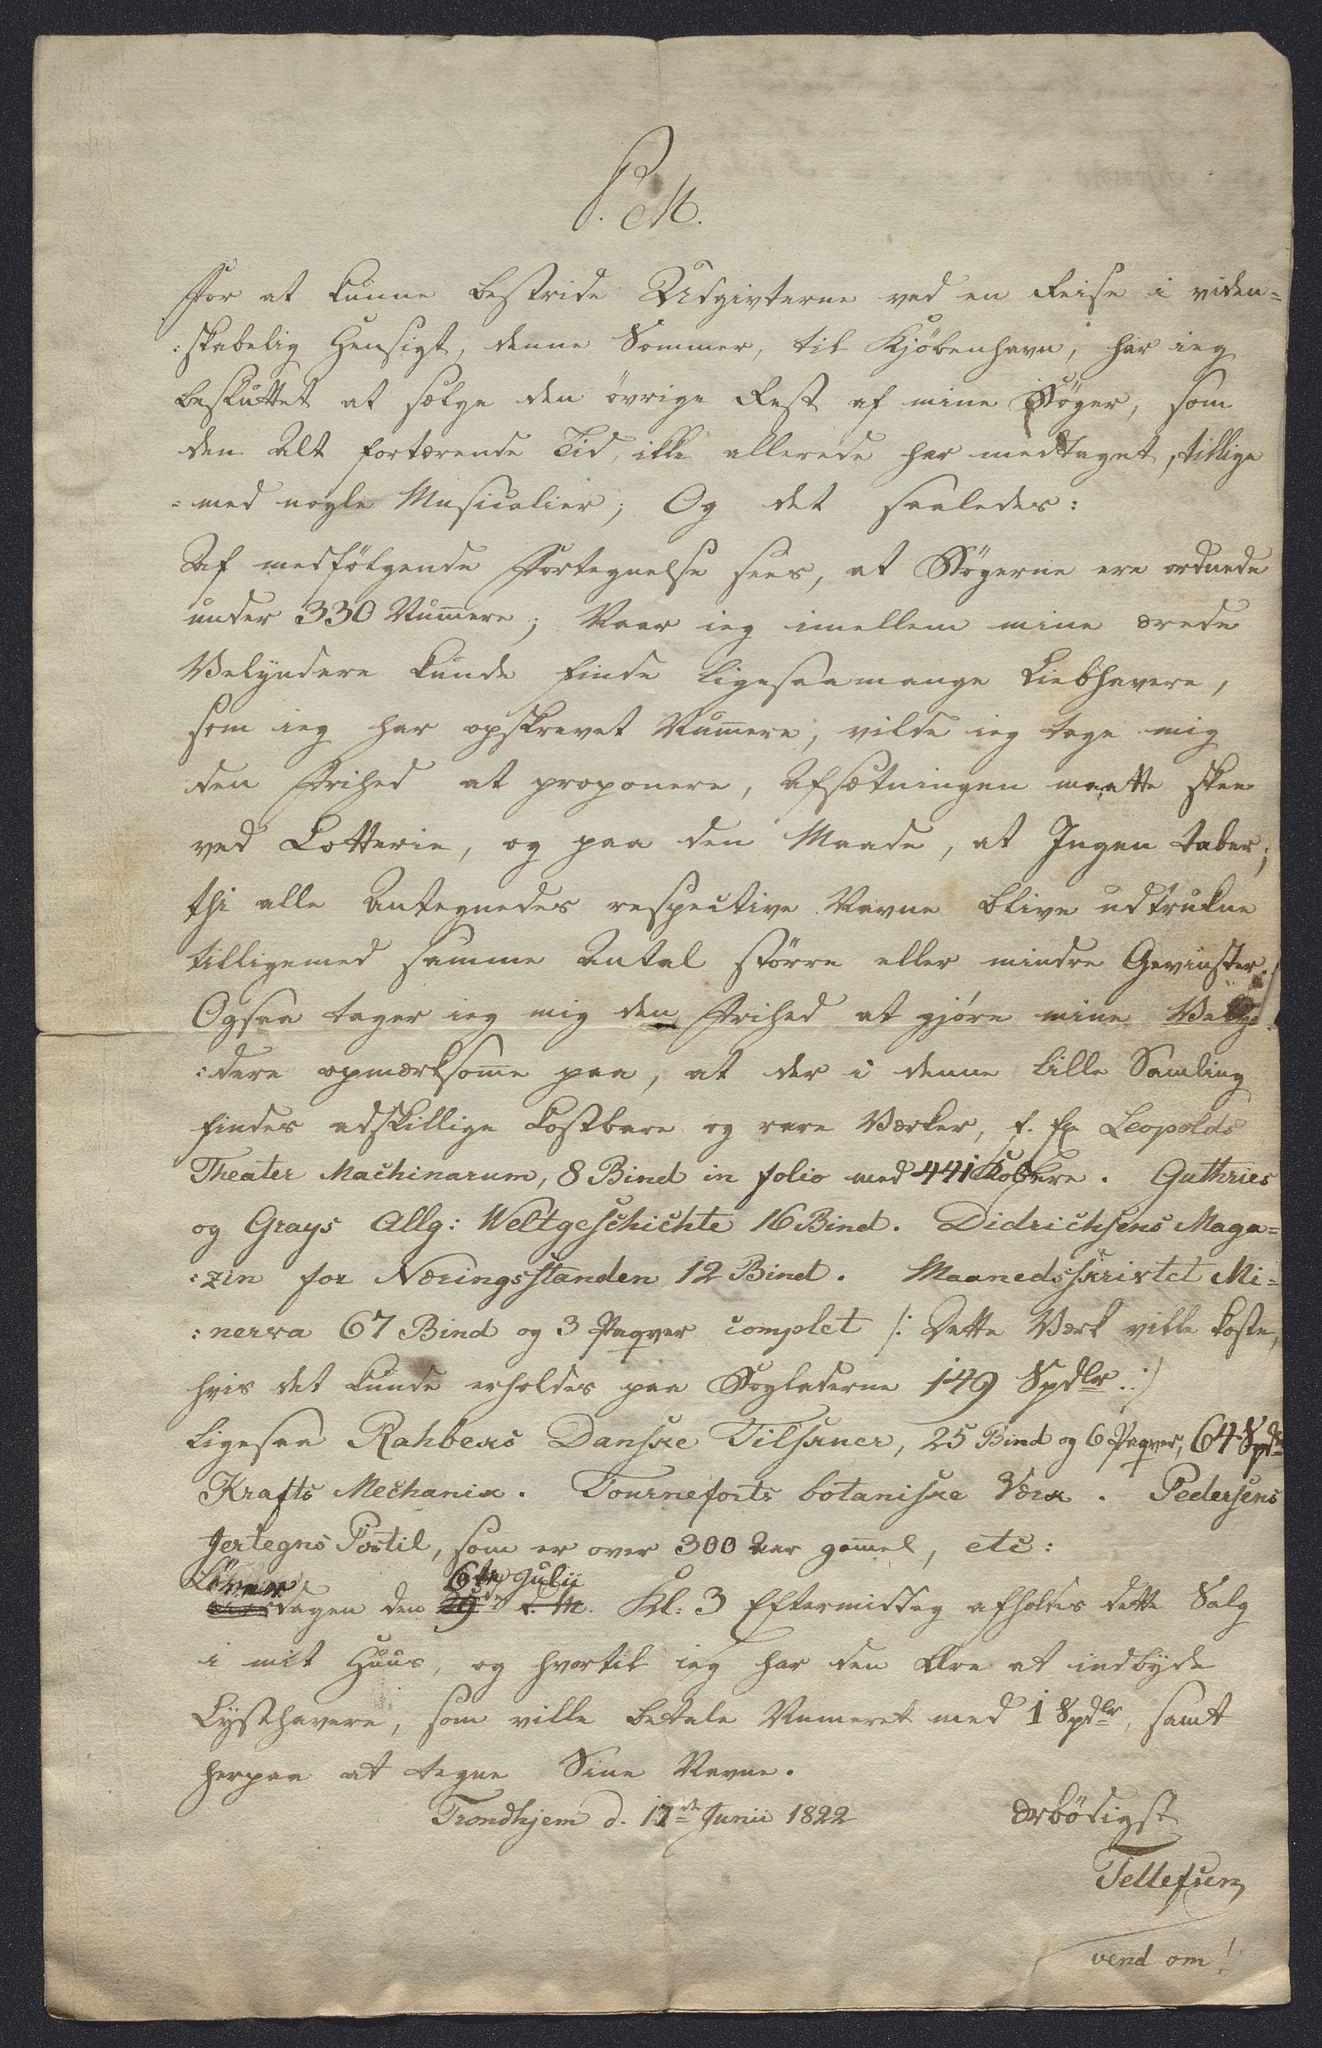 P. M.
For at kunne bestride Udgivterne ved en Reise i viden=
:skabelig Hensigt, denne Sommer, til Kjöbenhavn, har ieg
besluttet at sælge den övrige Rest af mine Böger, som
den Alt fortærende Tid, ikke allerede har medtaget, tillige
=med nogle Musicalier; Og det saaledes:
Af medfölgende Fortegnelse sees, at Bögerne ere ordnede
under 330 Numere; Naar ieg imellem mine ærede
Velyndere kunde finde ligesaamange Liebhavere,
som ieg har opskrevet Numere, vilde ieg tage mig
den Frihed at proponere, Afsætningen maatte skee
ved Lotterie, og paa den Maade, at Ingen taber;
thi alle Antegnedes respective Navne blive udtrukne
tilligemed samme Antal större eller mindre Gevinster.
Ogsaa tager ieg mig den Frihed at gjöre mine
:dere opmærksomme paa, at der i denne lille Samling
findes adskillige kostbare og rare Værker, f. Ex Leopolds
Theater Machinarum, 8 Bind in folio med 441 Kobbere. Guthries
og Grays Allg: Weltgeschichte 16 Bind. Didrichsens Maga=
:zin for Næringsstanden 12 Bind. Maanedsskrivtet Mi=
:nerva 67 Bind og 3 Paqver complet /: Dette Værk ville koste,
hvis det kunde erholdes paa Bogladerne 149 Spdlr. :/
Ligesaa Rahbeks Danske Tilskuer, 25 Bind og 6 Paqver, 64 Spdlr
Krafts Mechanik. Tourneforts botaniske Værk. Pedersens
Jertegns Postil, som er over 300 Aar gamel, etc:
Löver 6te Julii
dagen den 29de d. M. Kl: 3 Eftermiddag afholdes dette Salg
i mit Huus, og hvortil ieg har den Ære at indbyde
Lysthavere, som ville betale Numeret med 1 Spdlr, samt
herpaa at tegne Sine Navne.
Trondhjem d. 17de Junii 1822 Ærbödigst
Tellefsen
vend om!